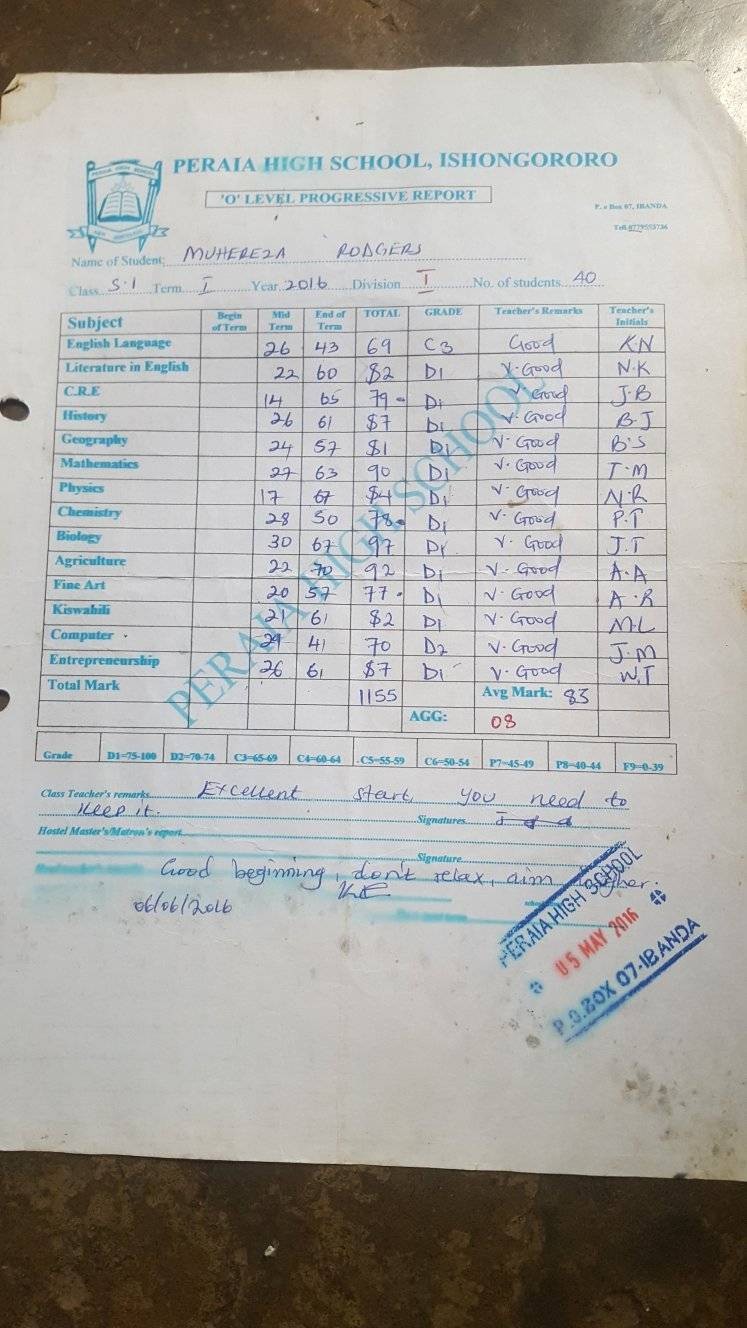 PERAIA HIGH SCHOOL
PERAIA HIGH SCHOOL, ISHONGORORO
'O' LEVEL PROGRESSIVE REPORT
P. o Box 07, IBANDA
Tell.0779553736
Name of Student: MUHEREZA RODGERS
Class S.1 Term I Year 2016 Division I No. of students 40
Subject Begin of Term Mid Term End of Term TOTAL GRADE Teacher's Remarks Teacher's Initials
English Language 26 43 69 C3 Good K.N
Literature in English 22 60 82 D1 V. Good N.K
C.R.E 14 65 79 D1 V. Good J.B
History 26 61 87 D1 V. Good B.J
Geography 24 57 81 D1 V. Good B.S
Mathematics 27 63 90 D1 V. Good T.M
Physics 17 67 84 D1 V. Good N.R
Chemistry 28 50 78 D1 V. Good P.T
Biology 30 67 97 D1 V. Good J.T
Agriculture 22 70 92 D1 V. Good A.A
Fine Art 20 57 77 D1 V. Good A.R
Kiswahili 21 61 82 D1 V. Good M.L
Computer 29 41 70 D2 V. Good J.M
Entrepreneurship 26 61 87 D1 V. Good W.T
Total Mark 1155 Avg Mark: 83
AGG: 08
PERAIA HIGH SCHOOL
Grade D1=75-100 D2=70-74 C3=65-69 C4=60-64 C5=55-59 C6=50-54 P7=45-49 P8=40-44 F9=0-39
Class Teacher's remarks Excellent start, you need to
Keep it. Signatures
Hostel Master's/Matron's report
Signature
Good beginning, don't relax, aim higher.
06/06/2016
PERAIA HIGH SCHOOL
05 MAY 2016
P.O.BOX 07-IBANDA